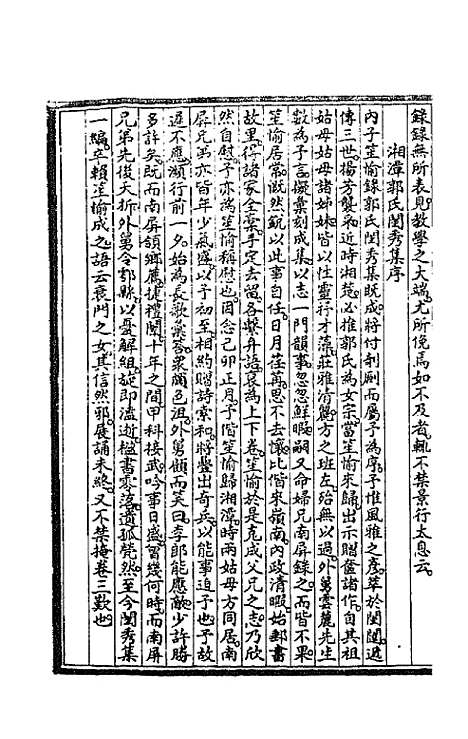 錄錄無所表見教學之大端尤所俛焉如不及者輒不禁景行太息云
湘潭郭氏閨秀集序
內子笙愉錄郭氏閨秀集既成將付剞劂而屬予為序予惟風雅之產萃於閨闥遞
傳三世揚芳襲采近時湘楚必推郭氏為女宗當笙愉來歸出示贈奩諸作自其祖
姑母姑母諸姊妹皆以性靈行才藻莊雅清麗方之班左殆無以過外舅雲麓先生
數為予言擬彙刻成集以志一門韻事忽忽鮮暇嗣又命婦兄南屏錄之而皆不果
笙愉居常慨然銳以此事自任日月荏苒思不去懷比偕來嶺南內政清暇始郵書
故里得諸家全稾手定去留各繫弁語裒為上下卷笙愉於是克成父兄之志乃欣
然自慰予亦為笙愉稱慰也因念己卯正月予偕笙愉歸湘潭時兩姑母方同居南
屏兄弟亦皆年少氣盛以予初至相約贈詩索和將疊出奇兵以能事迫予也予故
遲不應瀕行前一夕始為長歌彙答眾顏色沮外舅顧而笑曰李郎能應敵少許勝
多許矣既而南屏領鄉薦捷禮闈十年之間甲科接武吟事日盛曾幾何時而南屏
兄弟先後夭折外舅令鄠縣以憂解組旋即溘逝楹書零落遺孤煢然至今閨秀集
一編卒賴笙愉成之語云衰門之女其信然邪展誦未終又不禁掩卷三歎也